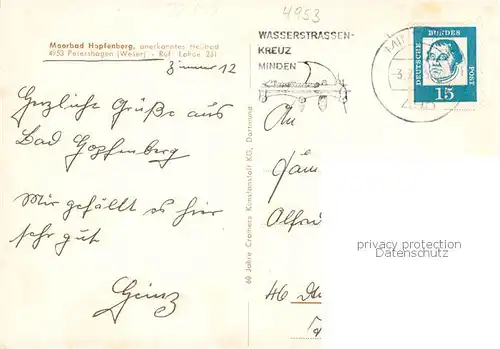 4953
Moorbad Hopfenberg, anerkanntes Heilbad
4953 Petershagen (Weser) - Ruf Lahde 231
Zimmer 12
Herzliche Grüße aus
Bad Hopfenberg
Mir gefällt es hier
sehr gut
Heinz
60 Jahre Cramers Kunstanstalt KG, Dortmund
WASSERSTRASSEN-
KREUZ
MINDEN
DEUTSCHE BUNDES POST
15
An
Alfred
46
privacy protection
Datenschutz